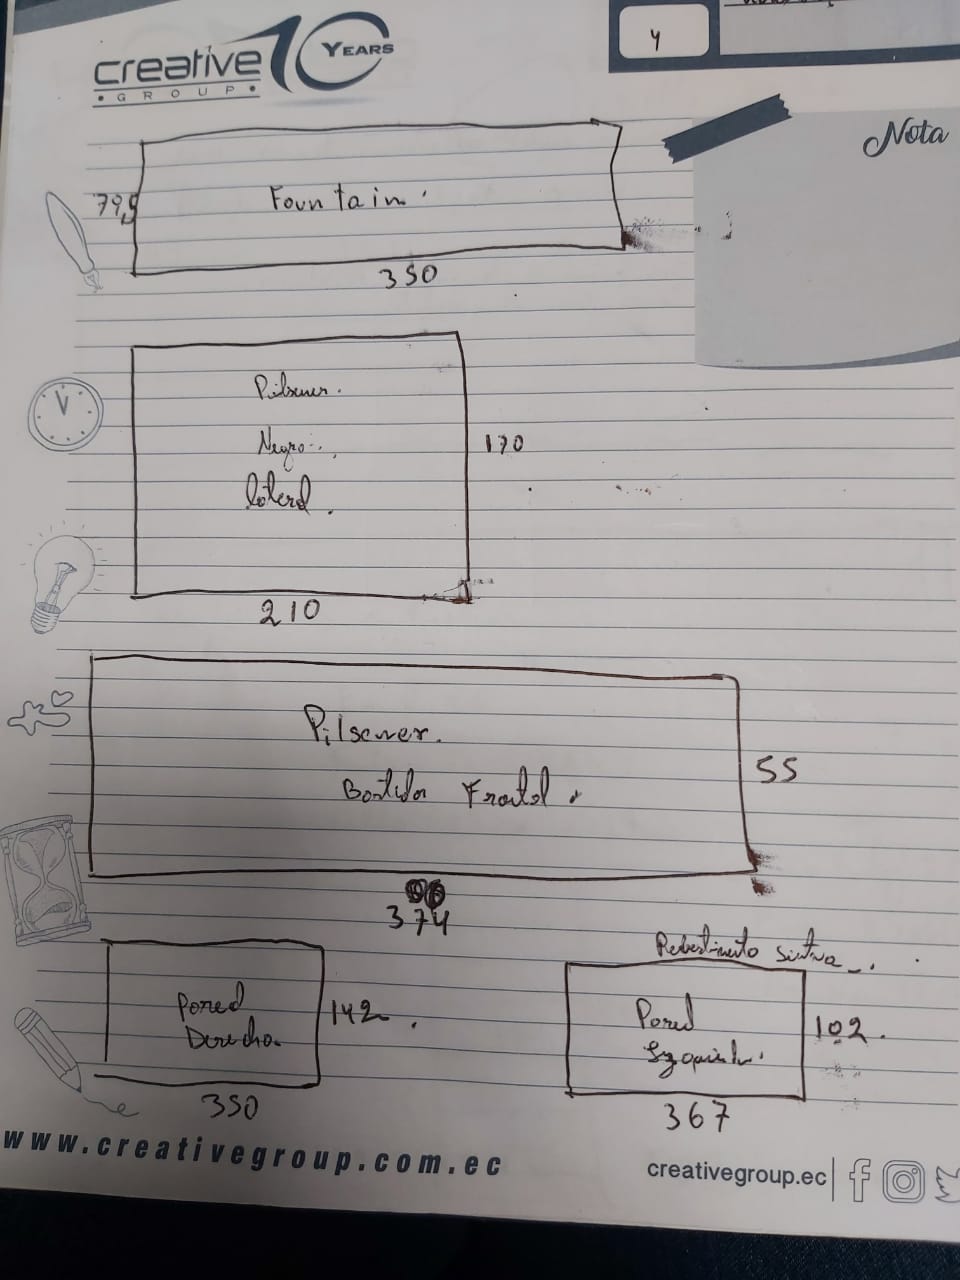 creative 10 YEARS
GROUP
4
Nota
Fountain.
79,5
350
Pilsener.
Negro.
lateral.
170
210
Pilsener.
Bastidor Frontal.
55
374
Pared
Derecha.
142.
350
Pared
Izquierda.
102.
367
www.creativegroup.com.ec
creativegroup.ec